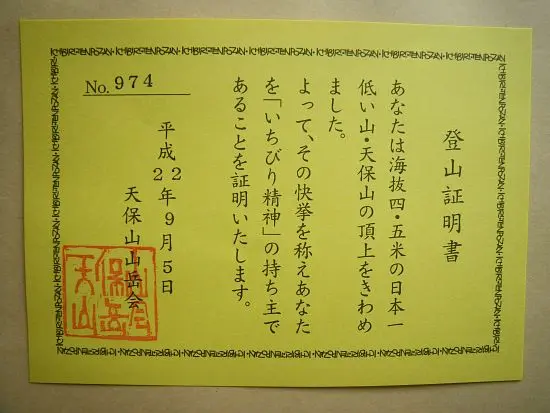 登山証明書
あなたは海抜四・五米の日本一
低い山・天保山の頂上をきわめ
ました。
よって、その快挙を称えあなた
を「いちびり精神」の持ち主で
あることを証明いたします。
No. 974
平成22年9月5日
天保山山岳会